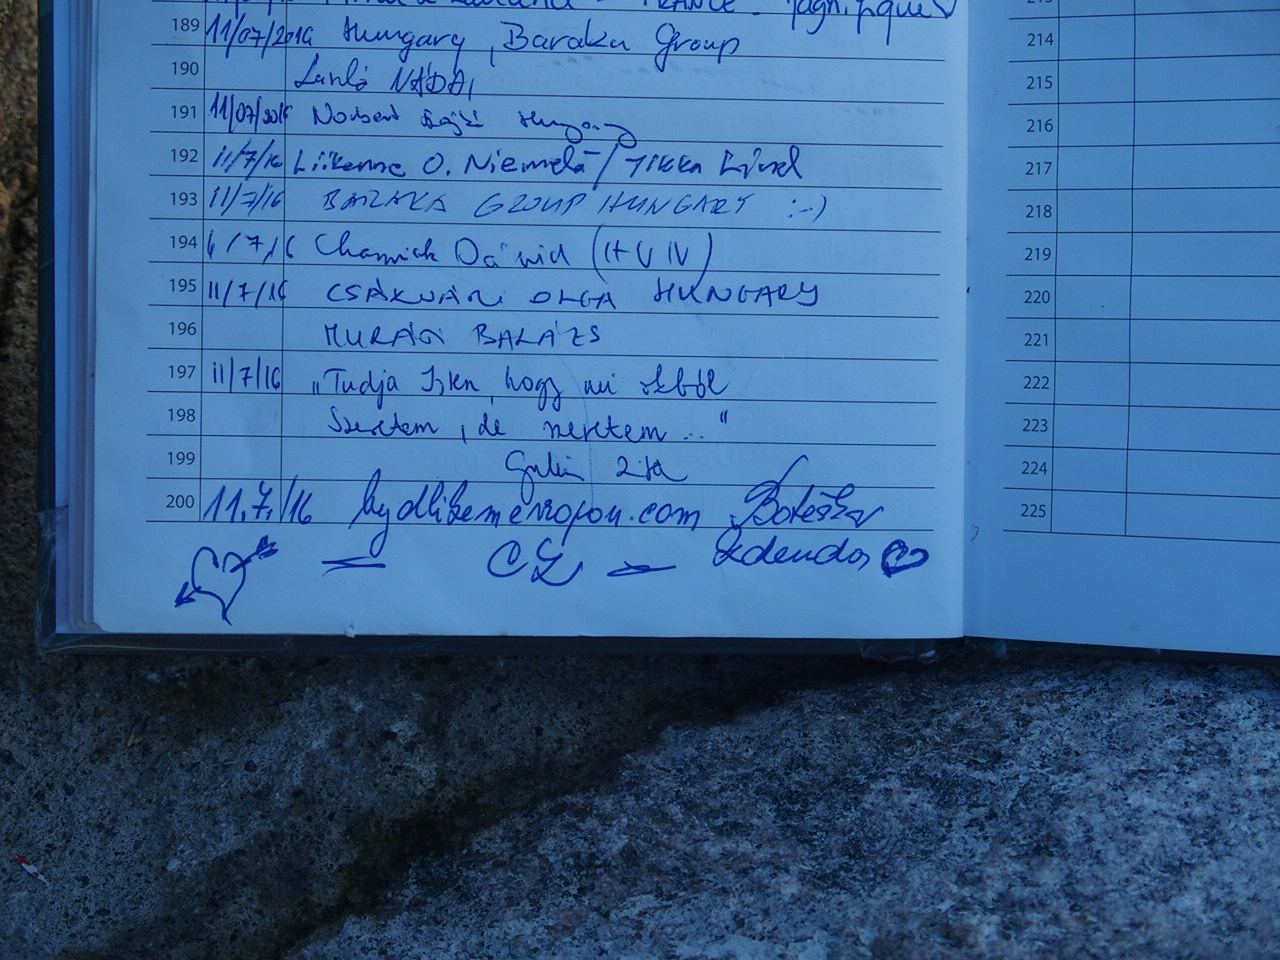 FRANCE - Magnifique
189 11/07/2016 Hungary, Baraka Group
190 László NÁDAI
191 11/07/2016 Norbert Hungary
192 11/7/16 Liikenne O. Niemelä / Jikka
193 11/7/16 BARAKA GROUP HUNGARY :-)
194 Dávid (HUN)
195 11/7/16 CSÁKVÁRI OLGA HUNGARY
196 MURÁGI BALÁZS
197 11/7/16 „Tudja Isten, hogy mi okból
198 Szeretem, de szeretem..."
199 Zita
200 11.7./16 bydlikemevropou.com
CZ
213
214
215
216
217
218
219
220
221
222
223
224
225